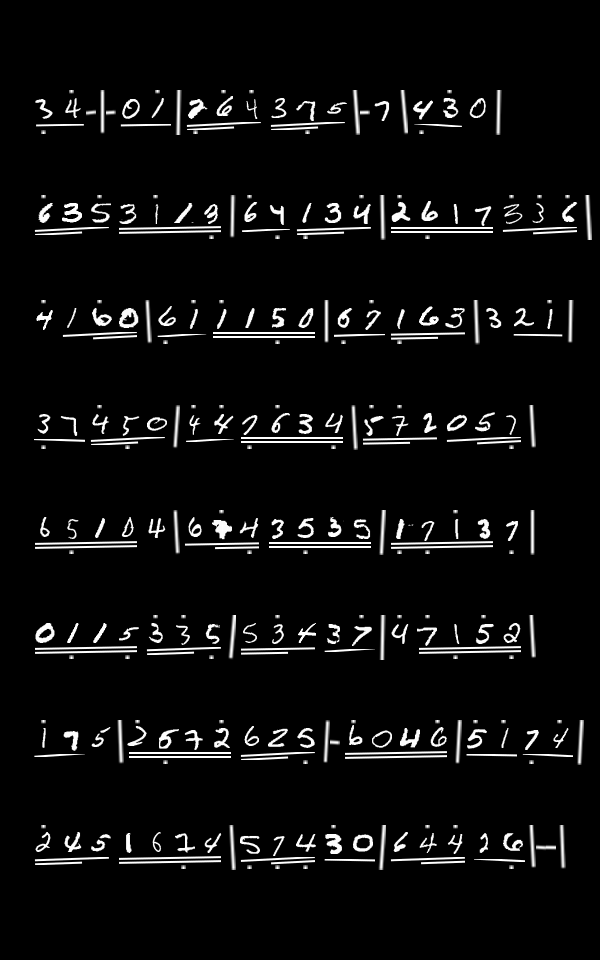 34-|-01|264375|-7|430|
6353119|64134|2617336|
4160|611150|67163|321|
37450|447634|572057|
65104|6743535|17137|
0115335|53437|47152|
175|2572625|-6046|5174|
2451674|57430|64426|-|